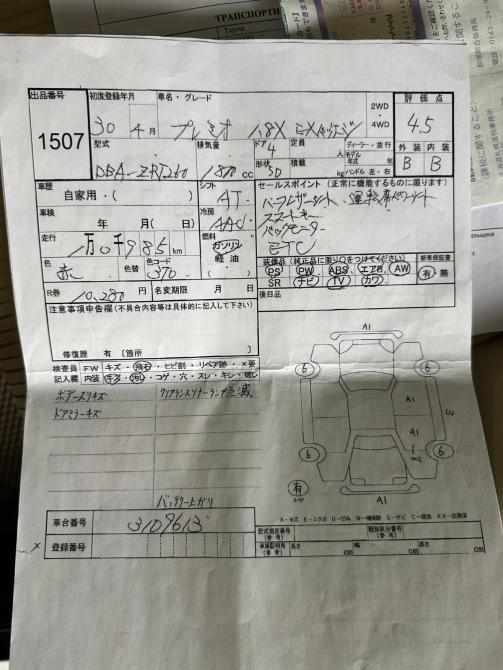 ТРАНСПОРТН
Toyota
出品番号
1507
初度登録年月
30年 4月
車名・グレード
プレミオ 1.8X EXパッケージ
2WD
・
4WD
評価点
4.5
型式
DBA-ZRT260
排気量
1800cc
ドア
4
形状
SD
定員
人
積載
kg
ディーラー・並行
モデル
年式 年
ハンドル 左・右
外装 内装
B B
車歴
自家用・( )
シフト
AT
車検
年 月(日)
冷房
AAC
走行
1万0千985km
燃料
ガソリン
軽油
・
( )
色
赤
色替
色コード
3T0
R券
10,280円
名変期限
月 日
セールスポイント (正常に機能するものに限ります)
ハーフレザーシート、運転席パワーシート
スマートキー
バックモニター
ETC
装備品(純正品に限り○をつけてください)
PS PW ABS エアB AW
SR ナビ TV カワ
新車保証書
有・無
後日品
注意事項申告欄(不具合内容等は具体的に記入して下さい)
修復歴 有 〔箇所 〕
検査員 FW キズ・飛石・ヒビ割・リペア跡・×要
記入欄 内装 キズ・汚れ・コゲ・穴・スレ・キレ・破レ
ボデースリキズ
クリアランスソナーランプ点滅
ドアミラーキズ
バッテリー上がり
A1
6 6
A1
A1
W2
6 6
A1
有
スペア
A-キズ E-エクボ U-凹み W-補修跡 S-サビ C-腐食 XX-交換済
車台番号
3109613
登録番号
型式指定番号
(参考)
類別区分番号
(参考)
車庫証明用
(参考)
長さ cm
幅 cm
高さ cm